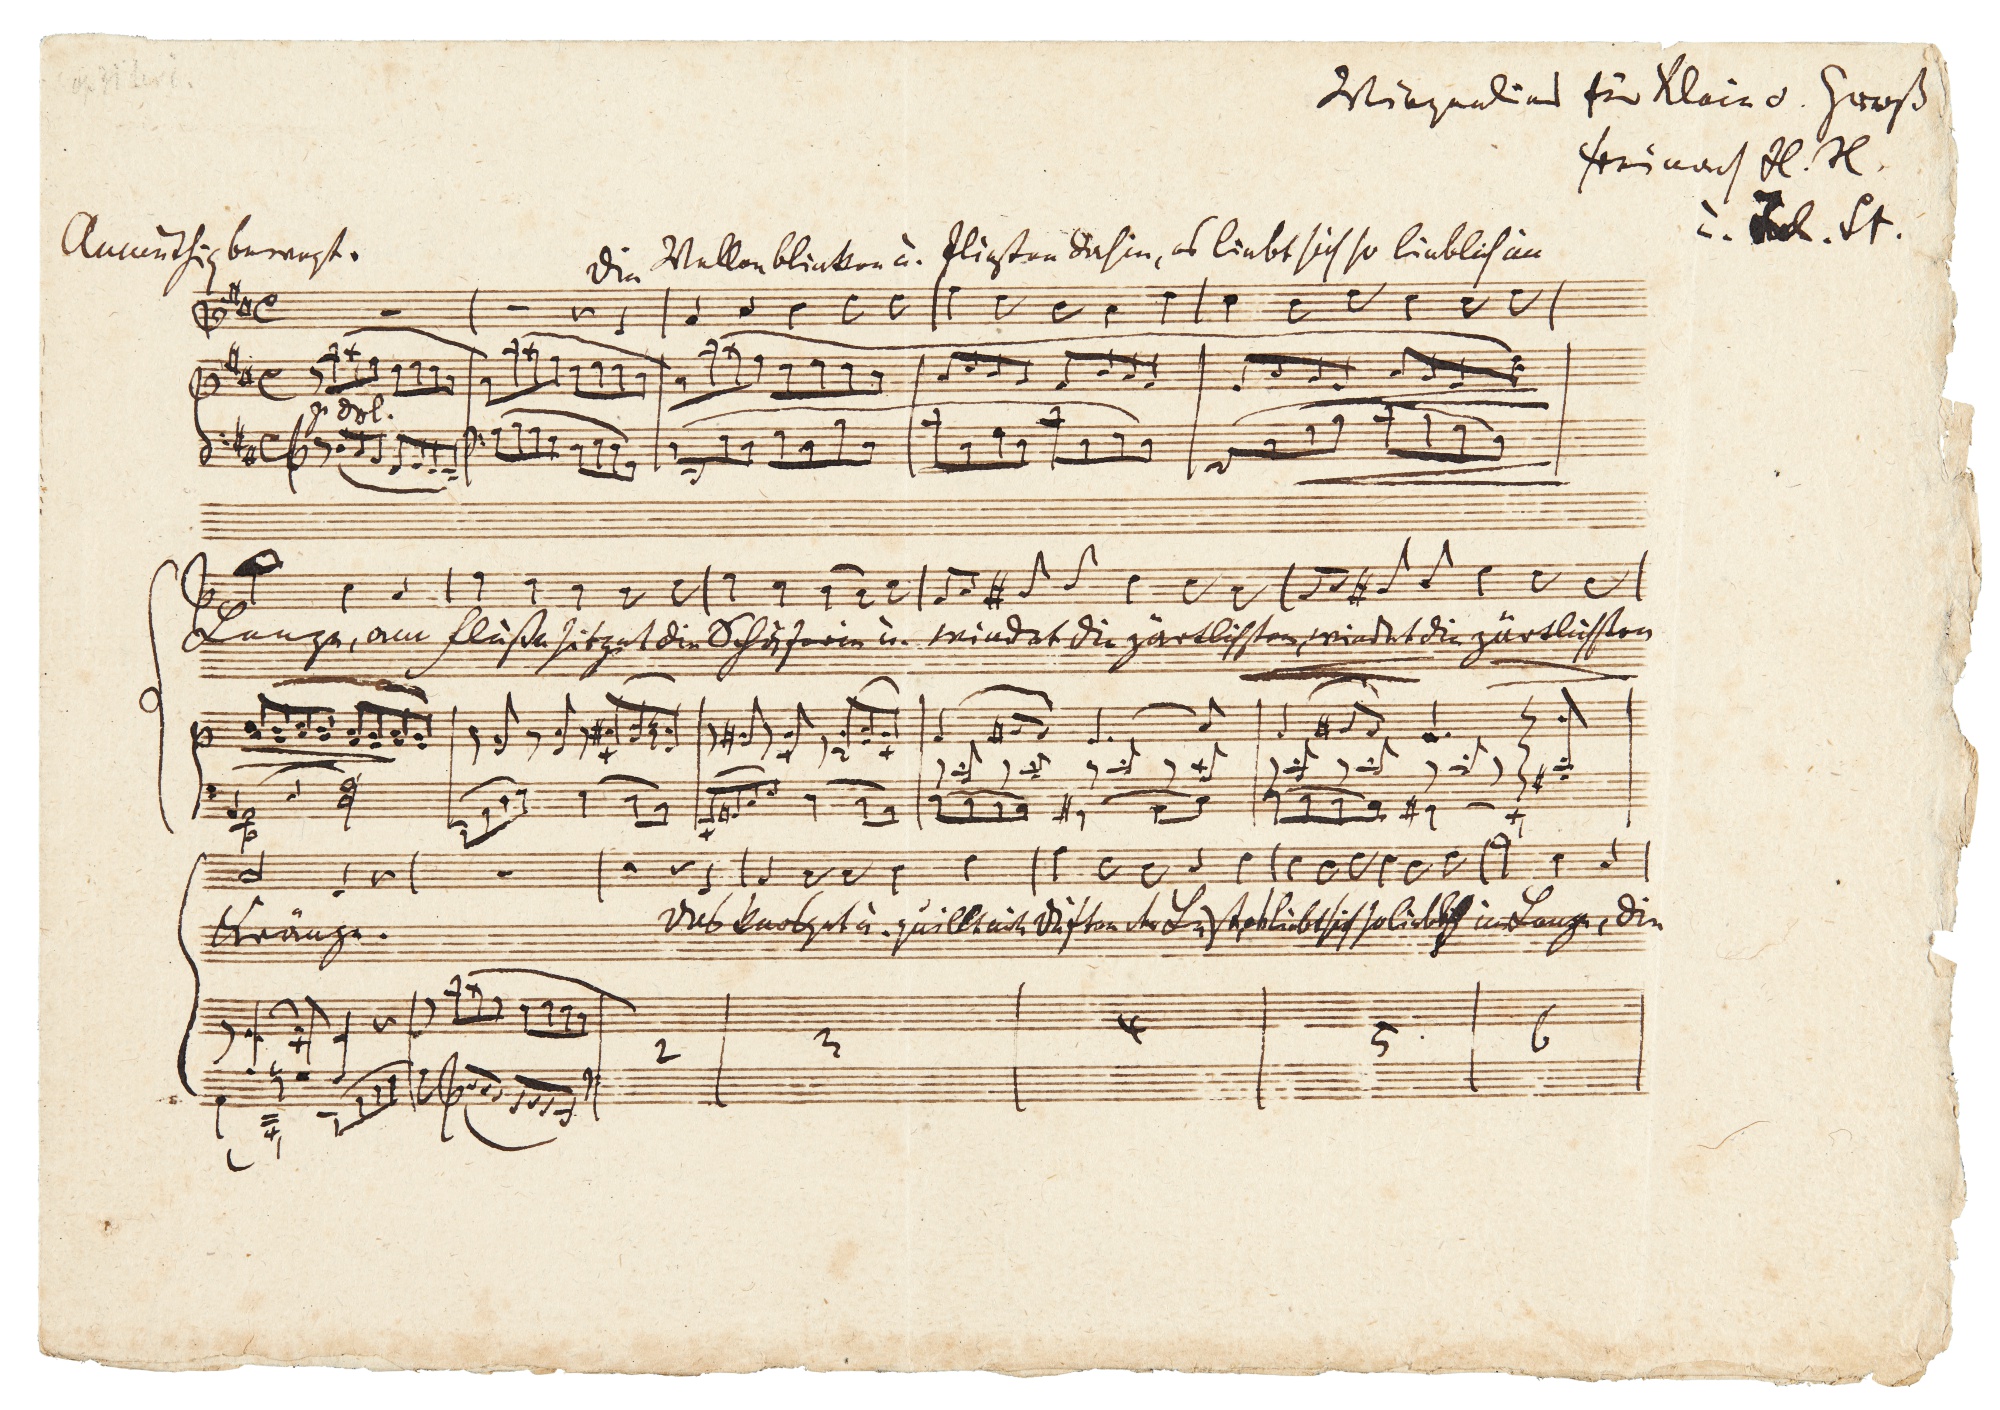 op 71 Nr 1.
Wiegenlied für Klein u. Groß
frei nach H. H.
u. St.
Anmuthig bewegt.
Die Wellen blinken u. fließen dahin, es liebt sich so lieblich im
p dol.
Lenze, am Fluße sitzet die Schäferin u. windet die zärtlichsten, windet die zärtlichsten
Kränze. Das knospet u. quillt mit duftender Lust, es liebt sich so lieblich im Lenze, die
2 3 4 5 6